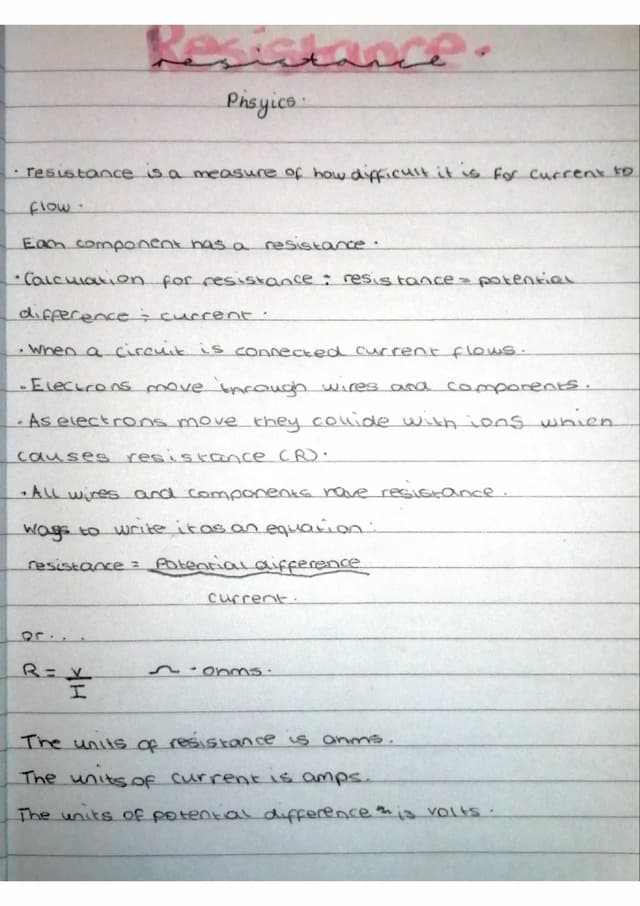 Resistance.
resistance
Phsyics.
· resistance is a measure of how difficult it is for current to
flow.
Each component has a resistance.
· Calculation for resistance: resistance = potential
difference ÷ current.
· When a circuit is connected current flows.
· Electrons move through wires and components.
· As electrons move they collide with ions which
causes resistance (R).
· All wires and components have resistance.
Ways to write it as an equation:
resistance = Potential difference
current.
or...
R = V Ω - ohms.
I
The units of resistance is ohms.
The units of current is amps.
The units of potential difference is volts.